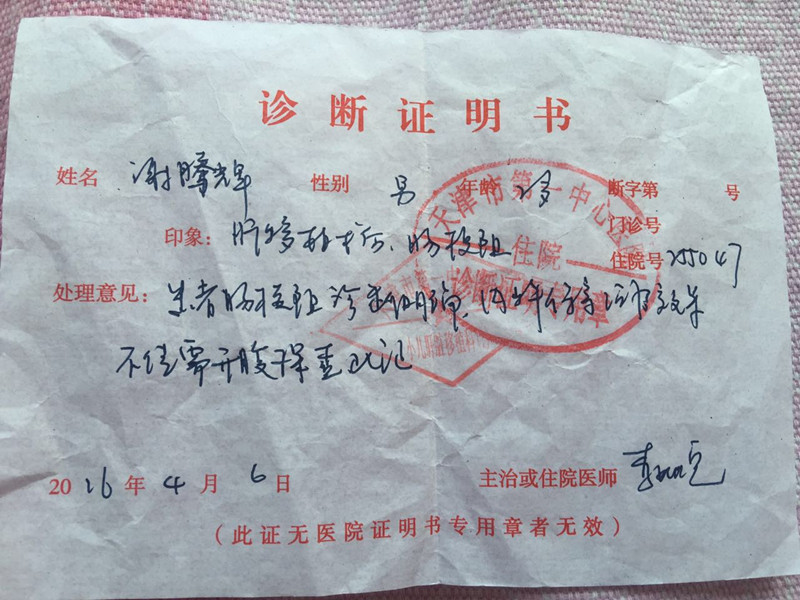 诊断证明书
姓名 谢腾辉 性别 男 年龄 断字第 号
门诊号
印象: 肝移植术后、肠梗阻 住院号 255047
处理意见: 患者肠梗阻诊断明确, 效果
不佳需开腹探查 此记
2016年4月6日 主治或住院医师 李
(此证无医院证明书专用章者无效)
天津市第一中心医院
住院
诊断证明专用章